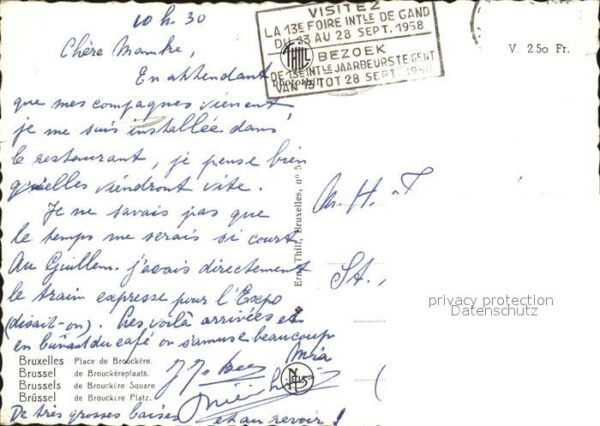 10 h. 30
Chère Mamke,
En attendant
que mes compagnes viennent
je me suis installée dans
le restaurant, je pense bien
qu'elles viendront vite.
Je ne savais pas que
le temps me serais si court
Au Guillem. j'avais directement
le train expresse pour l'Expo
(disait-on). Les voilà arrivées et
en buvant du café on s'amuse beaucoup
Mia
De très grosses baises et au revoir !
VISITEZ
LA 13E FOIRE INTLE DE GAND
DU 13 AU 28 SEPT. 1958
BEZOEK
DE 13E INTLE JAARBEURS TE GENT
VAN 13 TOT 28 SEPT. 1958
THILL
V. 2.50 Fr.
Ern. Thill, Bruxelles, n° 5
St.,
privacy protection
Datenschutz
Bruxelles Place de Brouckère.
Brussel de Brouckèreplaats.
Brussels de Brouckère Square
Brüssel de Brouckère Platz.